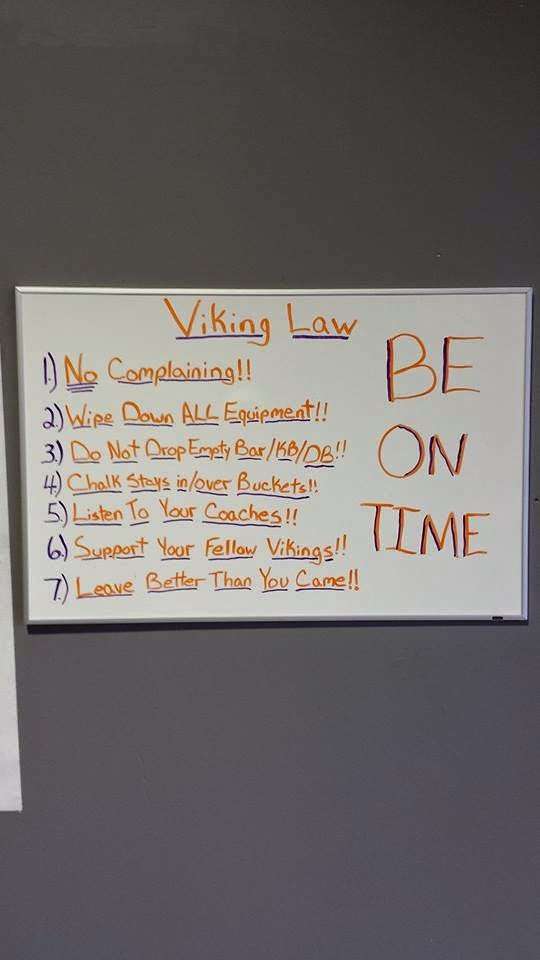 Viking Law
1.) No Complaining!!
2.) Wipe Down ALL Equipment!!
3.) Do Not Drop Empty Bar/KB/DB!!
4.) Chalk Stays in/over Buckets!!
5.) Listen To Your Coaches!!
6.) Support Your Fellow Vikings!!
7.) Leave Better Than You Came!!
BE
ON
TIME